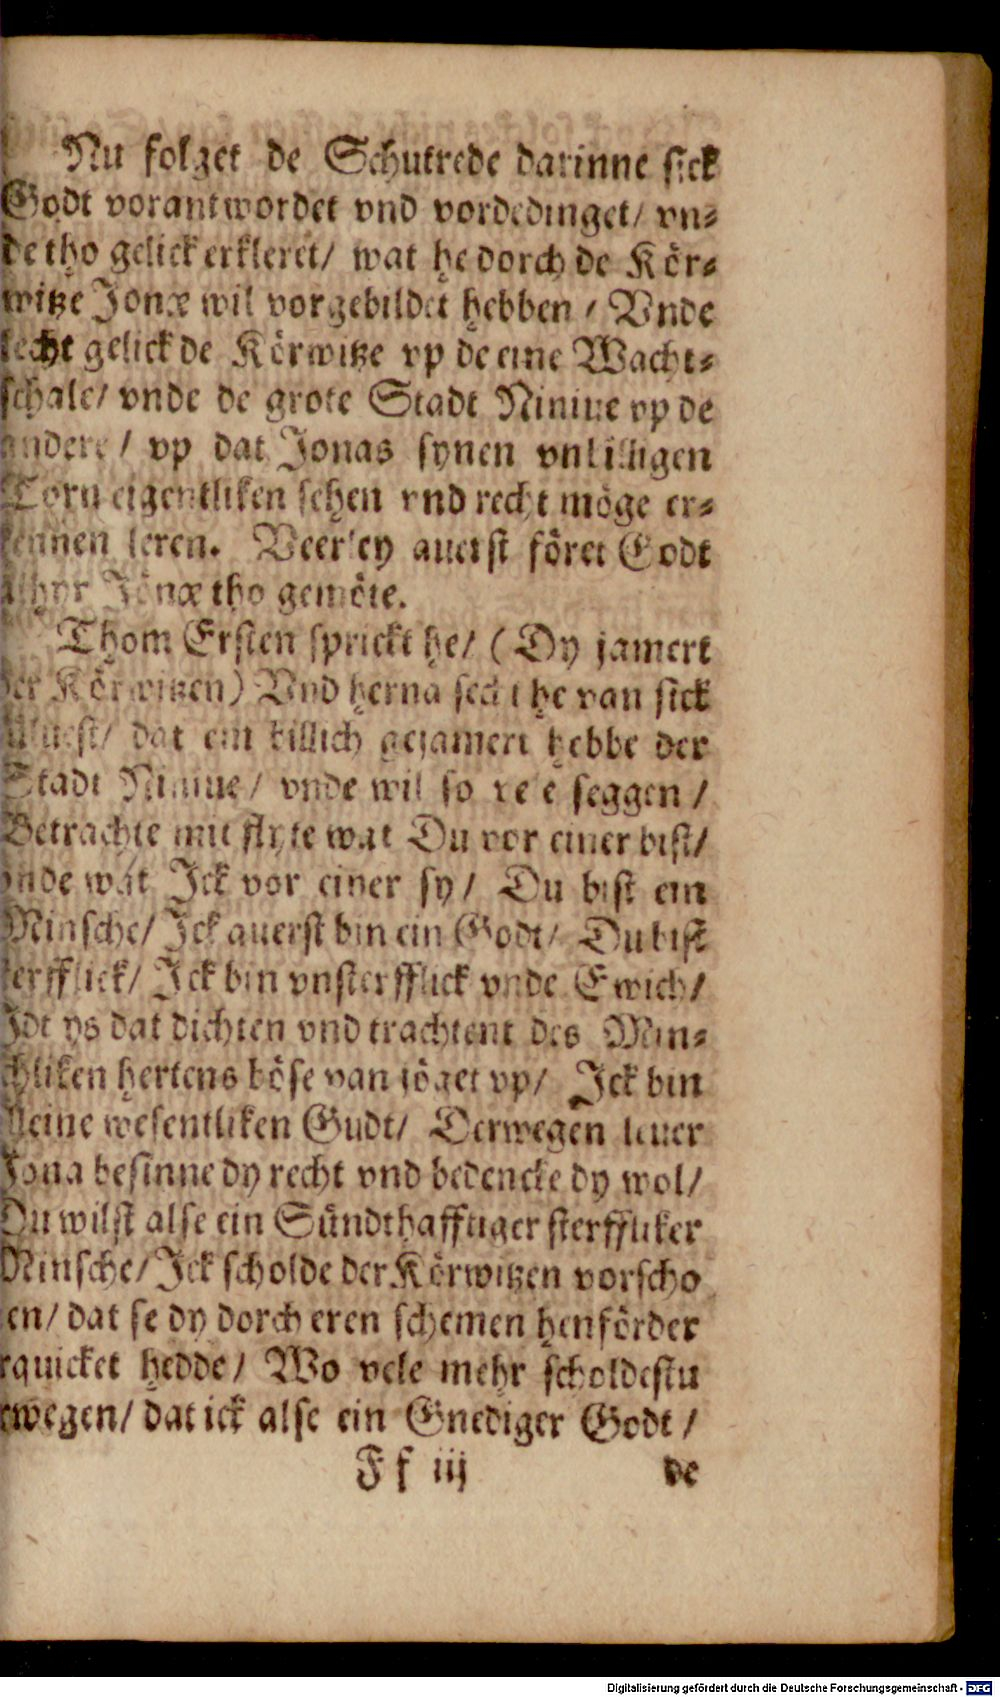 Nu folget de Schutrede darinne sick
Godt vorantwordet vnd vordedinget/ vn⸗
de tho gelick erkleret/ wat he dorch de Koͤr⸗
witze Jonæ wil vorgebildet hebben / Vnde
lecht gelick de Koͤrwitze vp de eine Wacht⸗
schale/ vnde de grote Stadt Niniue vp de
andere / vp dat Jonas synen vnbilligen
Torn eigentliken sehen vnd recht moͤge er⸗
kennen leren. Veerley auerst foͤret Godt
alhyr Jonæ tho gemoͤte.
Thom Ersten sprickt he/ (Dy jamert
der Koͤrwitzen) Vnd herna secht he van sick
suluest/ dat em billich gejamert hebbe der
Stadt Niniue/ vnde wil so vele seggen /
Betrachte mit flyte wat Du vor einer bist/
vnde wat Ick vor einer sy/ Du bist ein
Minsche/ Ick auerst bin ein Godt/ Du bist
sterfflick/ Ick bin vnsterfflick vnde Ewich/
Idt ys dat dichten vnd trachtent des Min⸗
schliken hertens boͤse van joͤget vp/ Ick bin
alleine wesentliken Gudt/ Derwegen leuer
Jona besinne dy recht vnd bedencke dy wol/
Du wilst alse ein Suͤndthafftiger sterffliker
Minsche/ Ick scholde der Koͤrwitzen vorscho
en/ dat se dy dorch eren schemen henfoͤrder
rquicket hedde/ Wo vele mehr scholdestu
rwegen/ dat ick alse ein Gnediger Godt /
Ff iij de
Digitalisierung gefördert durch die Deutsche Forschungsgemeinschaft - DFG